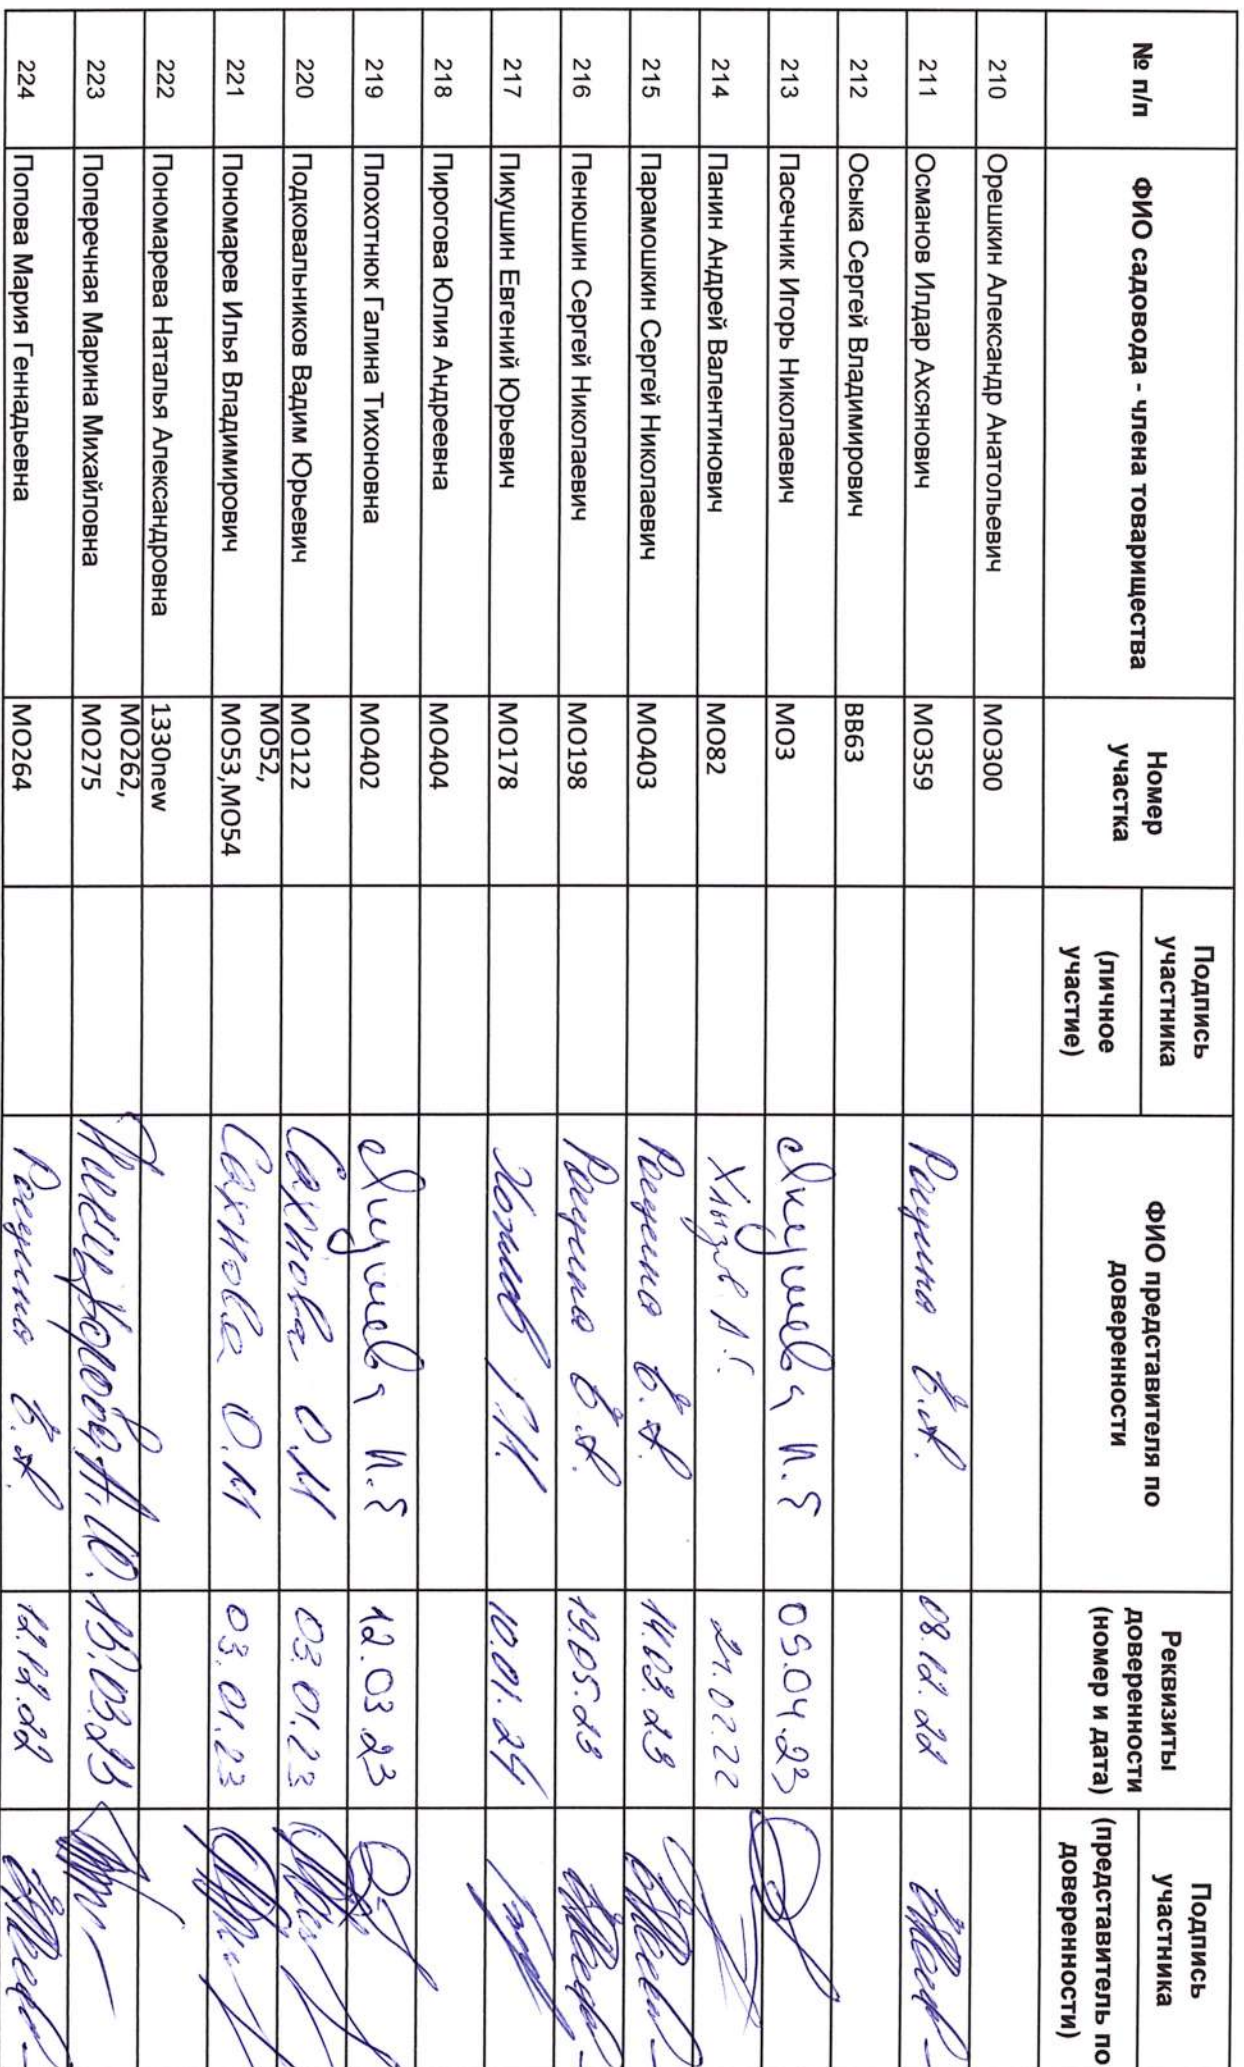 № п/п ФИО садовода - члена товарищества Номер участка Подпись участника (личное участие) ФИО представителя по доверенности Реквизиты доверенности (номер и дата) Подпись участника (представитель по доверенности)
210 Орешкин Александр Анатольевич МО300
211 Османов Илдар Ахсянович МО359 08.12.22
212 Осыка Сергей Владимирович ВВ63
213 Пасечник Игорь Николаевич МО3 И.Е 05.04.23
214 Панин Андрей Валентинович МО82
215 Парамошкин Сергей Николаевич МО403 14.03.23
216 Пенюшин Сергей Николаевич МО198 19.05.23
217 Пикушин Евгений Юрьевич МО178 10.01.24
218 Пирогова Юлия Андреевна МО404
219 Плохотнюк Галина Тихоновна МО402 И.Е 12.03.23
220 Подковальников Вадим Юрьевич МО122 Сахнова О.М 03.01.23
221 Пономарев Илья Владимирович МО52, МО53,МО54 Сахнова О.М 03.01.23
222 Пономарева Наталья Александровна 1330new
223 Поперечная Марина Михайловна МО262, МО275
224 Попова Мария Геннадьевна МО264 12.12.22